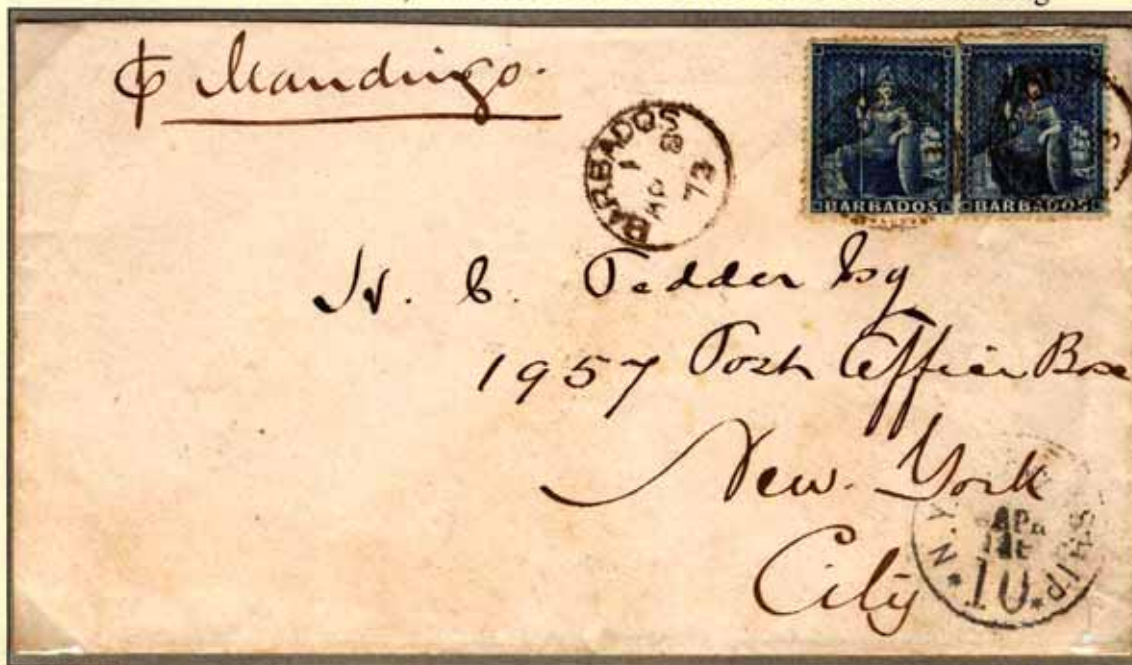 ₱ Mandingo.
BARBADOS
AP
73
BARBADOS BARBADOS
H. C. Tedder Esq
1957 Post Office Box
New. York
City
N.Y. SHIP
APR
10